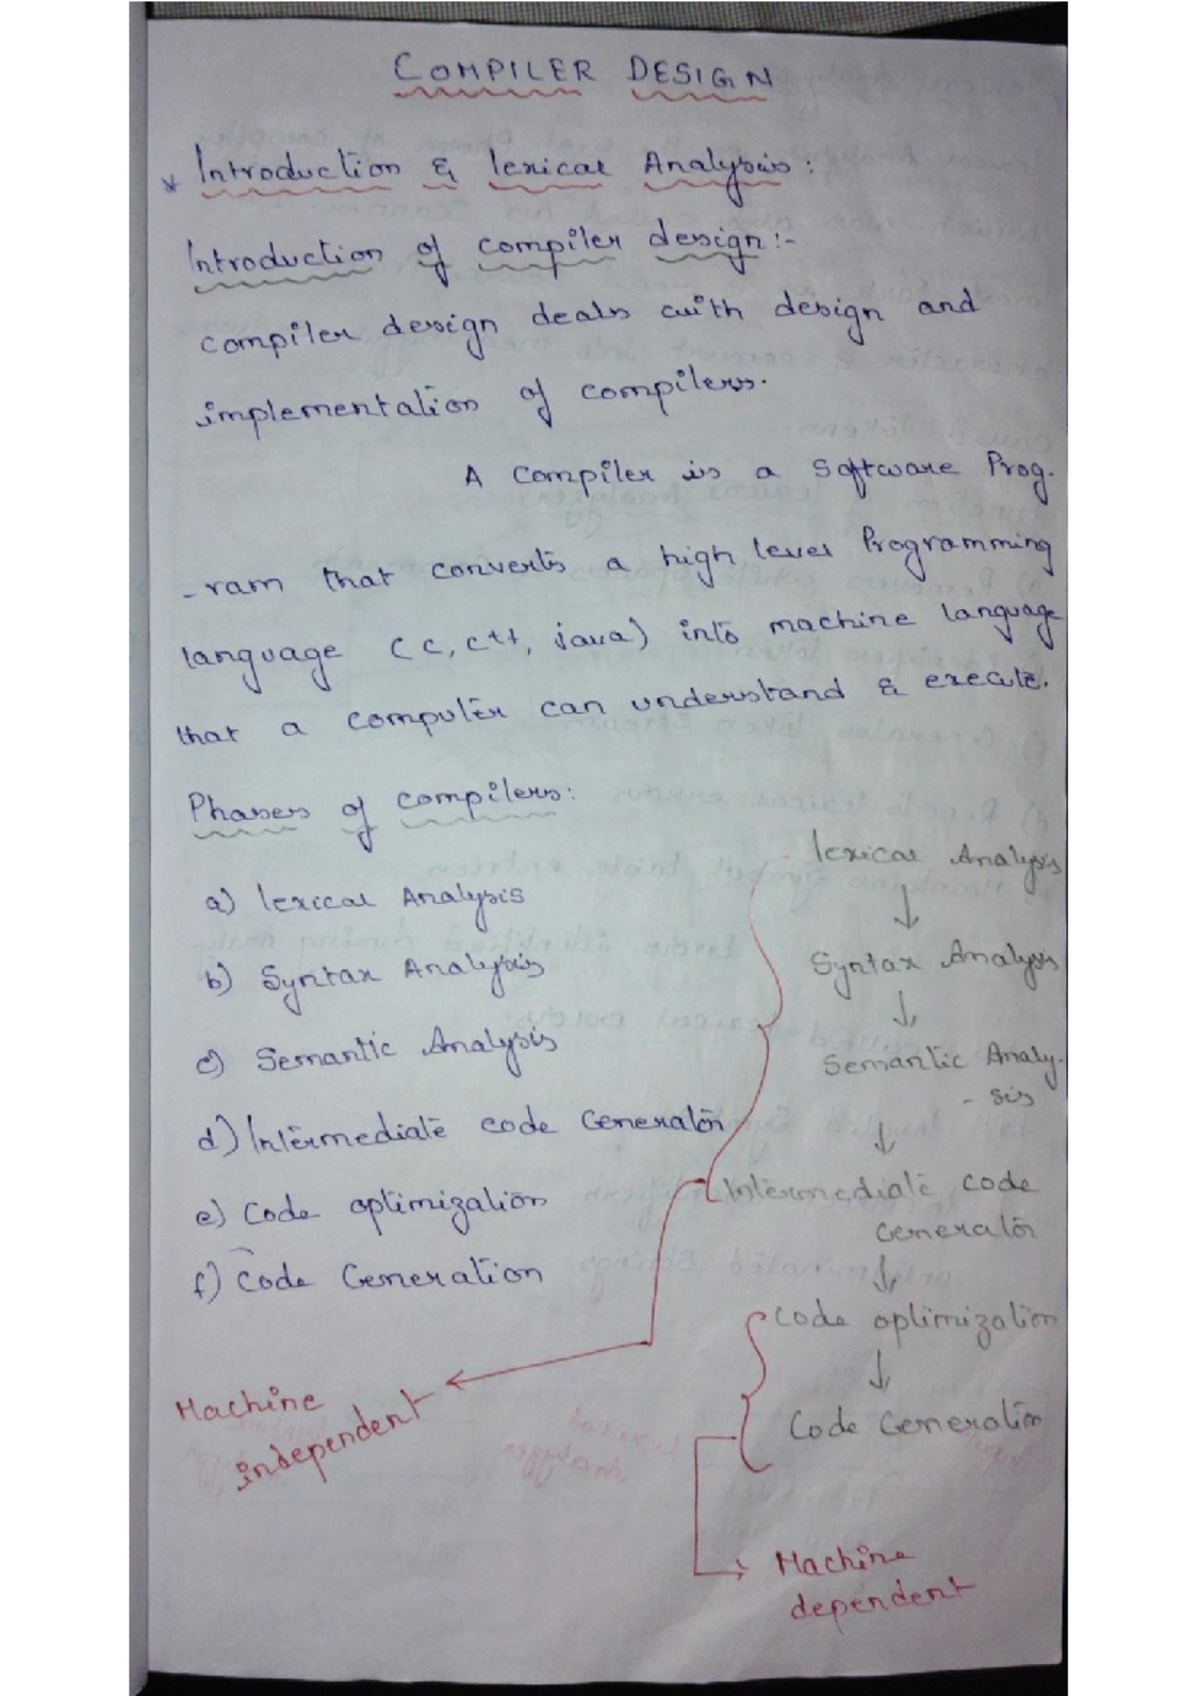 COMPILER DESIGN
* Introduction & lexical Analysis:
Introduction of compiler design:-
compiler design deals with design and
implementation of compilers.
A compiler is a software Prog.
-ram that converts a high level Programming
language (c, c++, java) into machine language
that a computer can understand & execute.
Phases of compilers:
a) lexical Analysis
b) Syntax Analysis
c) Semantic Analysis
d) Intermediate code Generator
e) Code optimization
f) Code Generation
lexical Analysis
↓
Syntax Analysis
↓
Semantic Analy-
- sis
↓
Intermediate code
Generator
↓
Code optimization
↓
Code Generation
Machine
independent
Machine
dependent